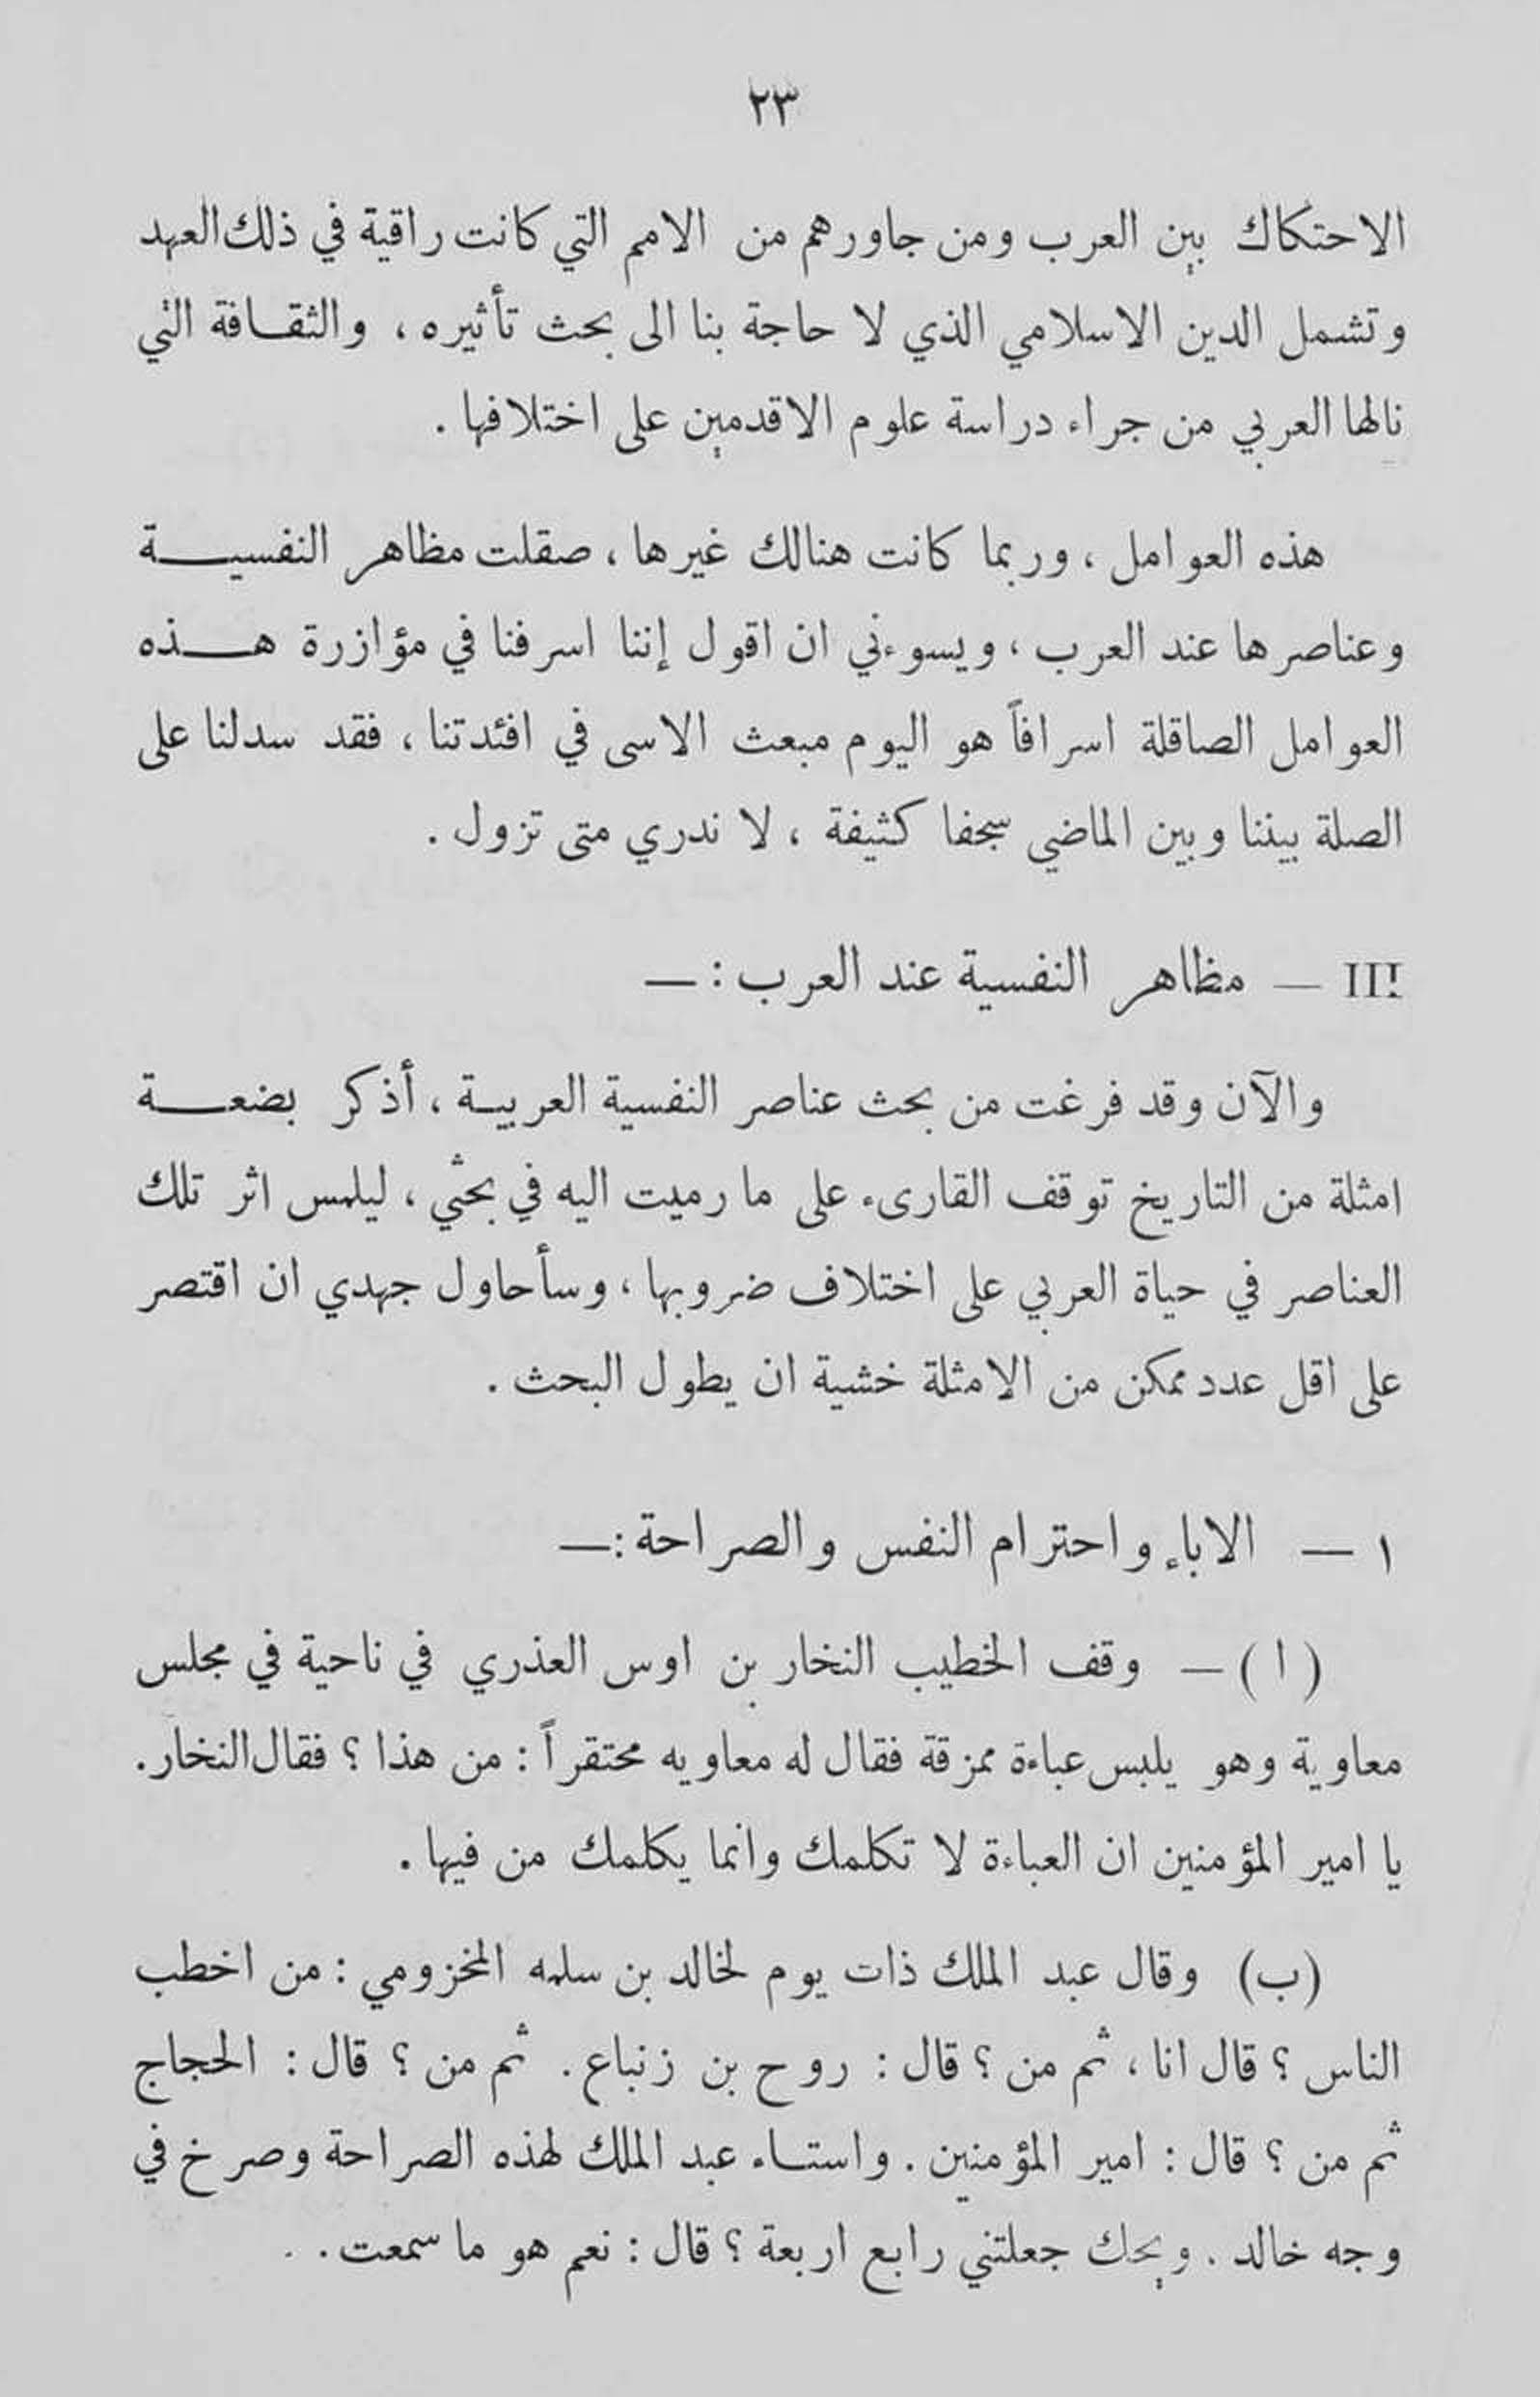 ٢٣
الاحتكاك بين العرب ومن جاورهم من الامم التي كانت راقية في ذلك العهد
وتشمل الدين الاسلامي الذي لا حاجة بنا الى بحث تأثيره ، والثقافة التي
نالها العربي من جراء دراسة علوم الاقدمين على اختلافها .
هذه العوامل ، وربما كانت هنالك غيرها ، صقلت مظاهر النفسية
وعناصرها عند العرب ، ويسوءني ان اقول إننا اسرفنا في مؤازرة هذه
العوامل الصاقلة اسرافاً هو اليوم مبعث الاسى في افئدتنا ، فقد سدلنا على
الصلة بيننا وبين الماضي سجفا كثيفة ، لا ندري متى تزول .
III — مظاهر النفسية عند العرب : —
والآن وقد فرغت من بحث عناصر النفسية العربية ، أذكر بضعة
امثلة من التاريخ توقف القارىء على ما رميت اليه في بحثي ، ليلمس اثر تلك
العناصر في حياة العربي على اختلاف ضروبها ، وسأحاول جهدي ان اقتصر
على اقل عدد ممكن من الامثلة خشية ان يطول البحث .
١ — الاباء واحترام النفس والصراحة : —
( ا ) — وقف الخطيب النخار بن اوس العذري في ناحية في مجلس
معاوية وهو يلبس عباءة ممزقة فقال له معاويه محتقراً : من هذا ؟ فقال النخار .
يا امير المؤمنين ان العباءة لا تكلمك وانما يكلمك من فيها .
(ب) وقال عبد الملك ذات يوم لخالد بن سلمه المخزومي : من اخطب
الناس ؟ قال انا ، ثم من ؟ قال : روح بن زنباع . ثم من ؟ قال : الحجاج
ثم من ؟ قال : امير المؤمنين . واستاء عبد الملك لهذه الصراحة وصرخ في
وجه خالد . ويحك جعلتني رابع اربعة ؟ قال : نعم هو ما سمعت . .